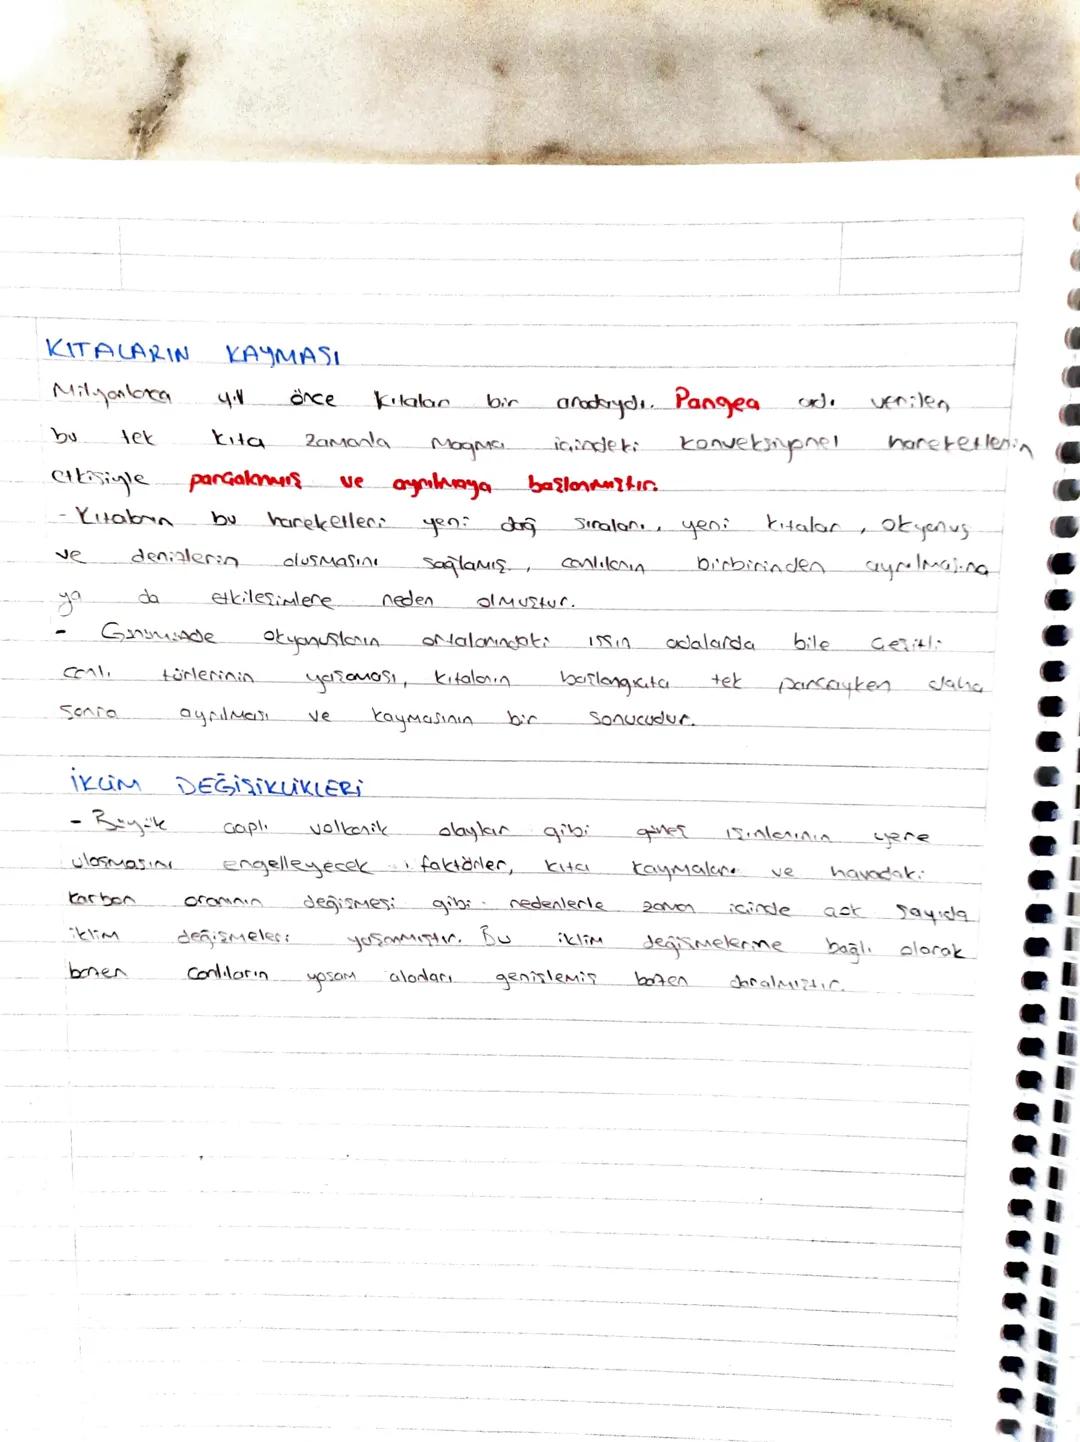 KITALARIN KAYMASI
Milyonlarca yıl önce kıtalar bir aradaydı. Pangea adı verilen
bu tek kıta zamanla magma içindeki konveksiyonel hareketlerin
etkisiyle parçalanmış ve ayrılmaya başlanmıştır.
- Kıtaların bu hareketleri yeni dağ sıraları, yeni kıtalar, okyanus
ve denizlerin oluşmasını sağlamış, canlıların birbirinden ayrılmasına
ya da etkileşimlere neden olmuştur.
- Günümüzde okyanusların ortalarındaki ıssın adalarda bile çeşitli
canlı türlerinin yaşaması, kıtaların başlangıçta tek parçayken daha
sonra ayrılması ve kaymasının bir sonucudur.
İKLİM DEĞİŞİKLİKLERİ
- Büyük çaplı volkanik olaylar gibi güneş ışınlarının yere
ulaşmasını engelleyecek faktörler, kıta kaymaları ve havadaki
karbon oranının değişmesi gibi nedenlerle zaman içinde çok sayıda
iklim değişmeleri yaşanmıştır. Bu iklim değişmelerine bağlı olarak
bazen canlıların yaşam alanları genişlemiş bazen daralmıştır.